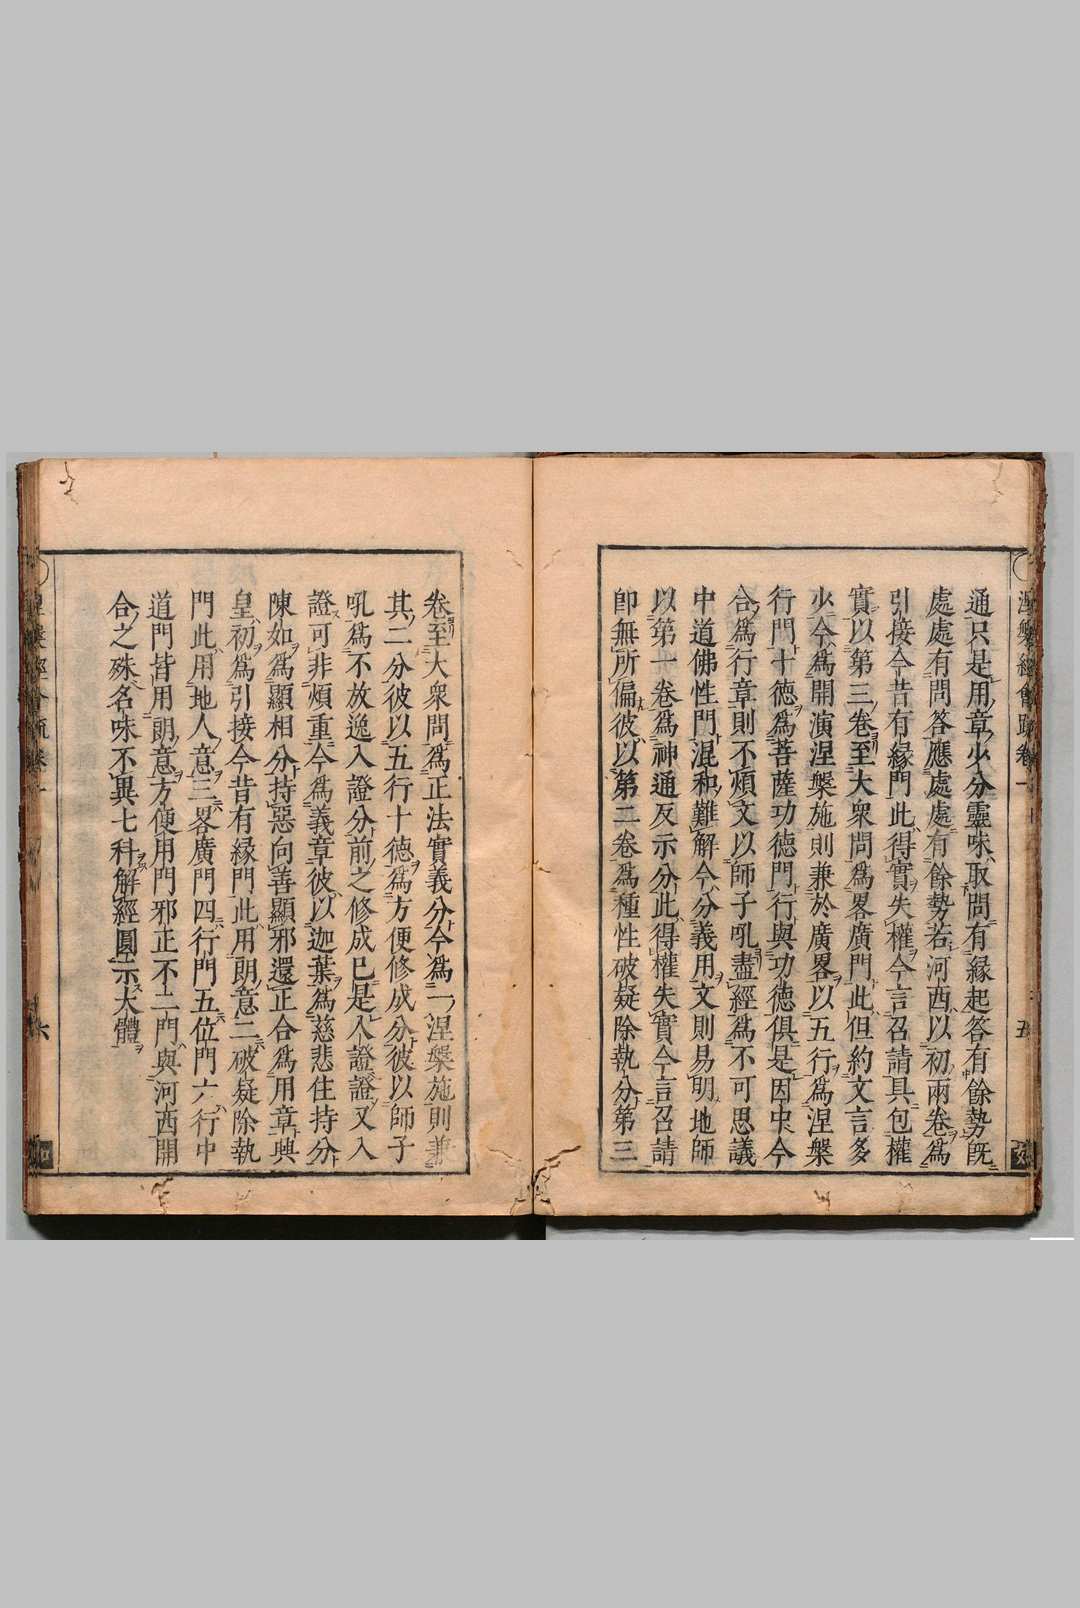 涅槃經會疏卷一
五
通只是用章少分靈味取問有縁起答有餘勢旣
處處有問答應處處有餘勢若河西以初兩卷爲
引接今昔有縁門此得實失權今言召請具包權
實以第三卷至大衆問爲畧廣門此但約文言多
少今爲開演涅槃施則兼於廣畧以五行爲涅槃
行門十德爲菩薩功德門行與功德俱是因中今
合爲行章則不煩文以師子吼盡經爲不可思議
中道佛性門混和難解今分義用文則易明地師
以第一卷爲神通反示分此得權失實今言召請
卽無所偏彼以第二卷爲種性破疑除執分第三
卷至大衆問爲正法實義分今爲二涅槃施則兼
其二分彼以五行十德爲方便修成分彼以師子
吼爲不放逸入證分前之修成已是入證證又入
證可非煩重今爲義章彼以迦葉爲慈悲住持分
陳如爲顯相分持惡向善顯邪還正合爲用章興
皇初爲引接今昔有縁門此用朗意二破疑除執
門此用地人意三畧廣門四行門五位門六行中
道門皆用朗意方便用門邪正不二門與河西開
合之殊名味不異七科解經圓示大體
六